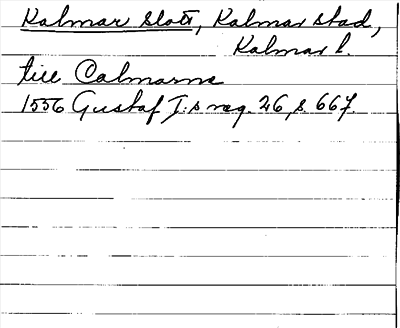 Kalmar slott, Kalmar stad,
Kalmar l.
till Calmarne
1556 Gustaf I:s reg. 26, s. 667.